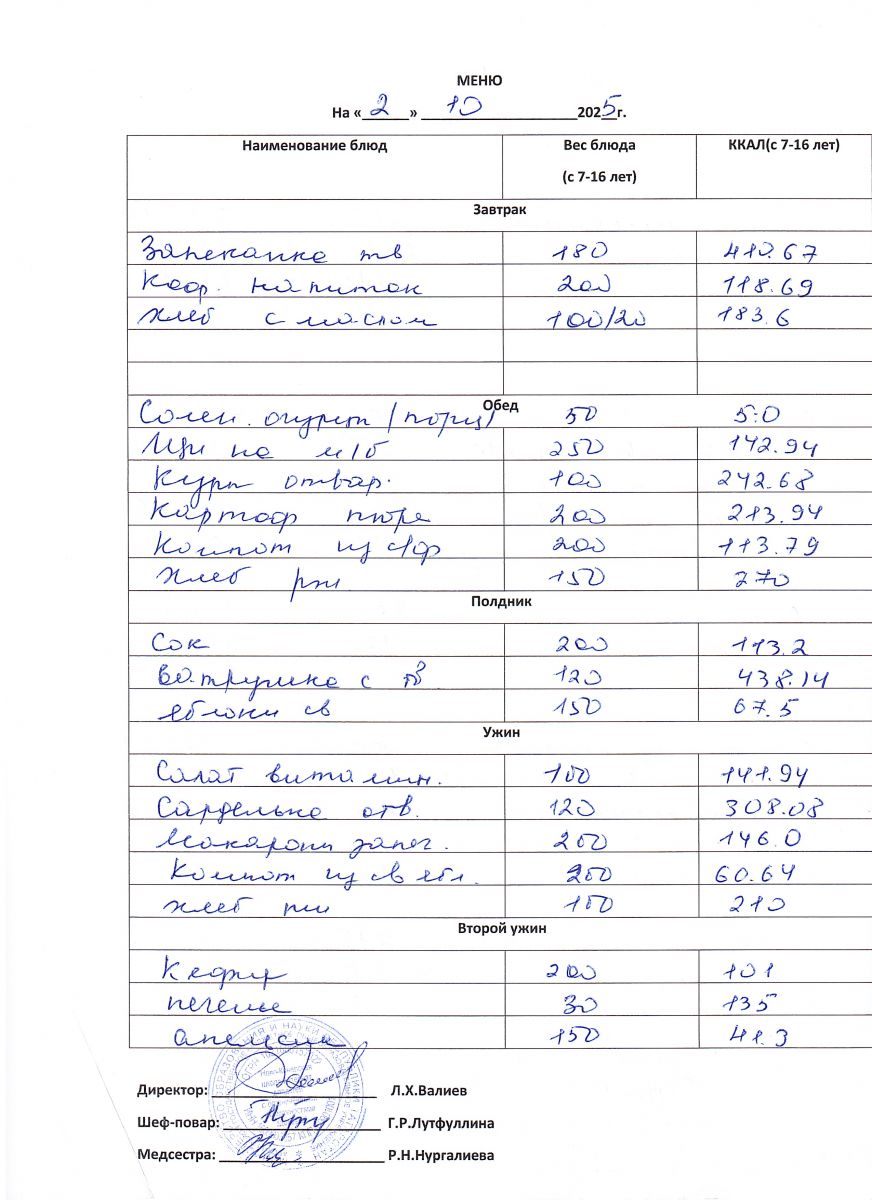 МЕНЮ
На «2» 10 2025г.
Наименование блюд Вес блюда (с 7-16 лет) ККАЛ(с 7-16 лет)
Завтрак
Запеканка тв 180 410.67
Коф. напиток 200 118.69
Хлеб с маслом 100/20 183.6
Обед
Солен. огурец (порц) 50 5.0
Щи на м/б 250 142.94
Куры отвар. 100 242.68
Картоф пюре 200 213.94
Компот из с/ф 200 113.79
Хлеб рж 150 270
Полдник
Сок 200 113.2
Ватрушка с тв 120 438.14
Яблоки св 150 67.5
Ужин
Салат витамин. 100 141.94
Сарделька отв. 120 308.08
Макароны запеч. 200 146.0
Компот из св ябл. 200 60.64
хлеб рж 100 210
Второй ужин
Кефир 200 101
печенье 30 135
апельсин 150 41.3
Директор: Л.Х.Валиев
Шеф-повар: Г.Р.Лутфуллина
Медсестра: Р.Н.Нургалиева